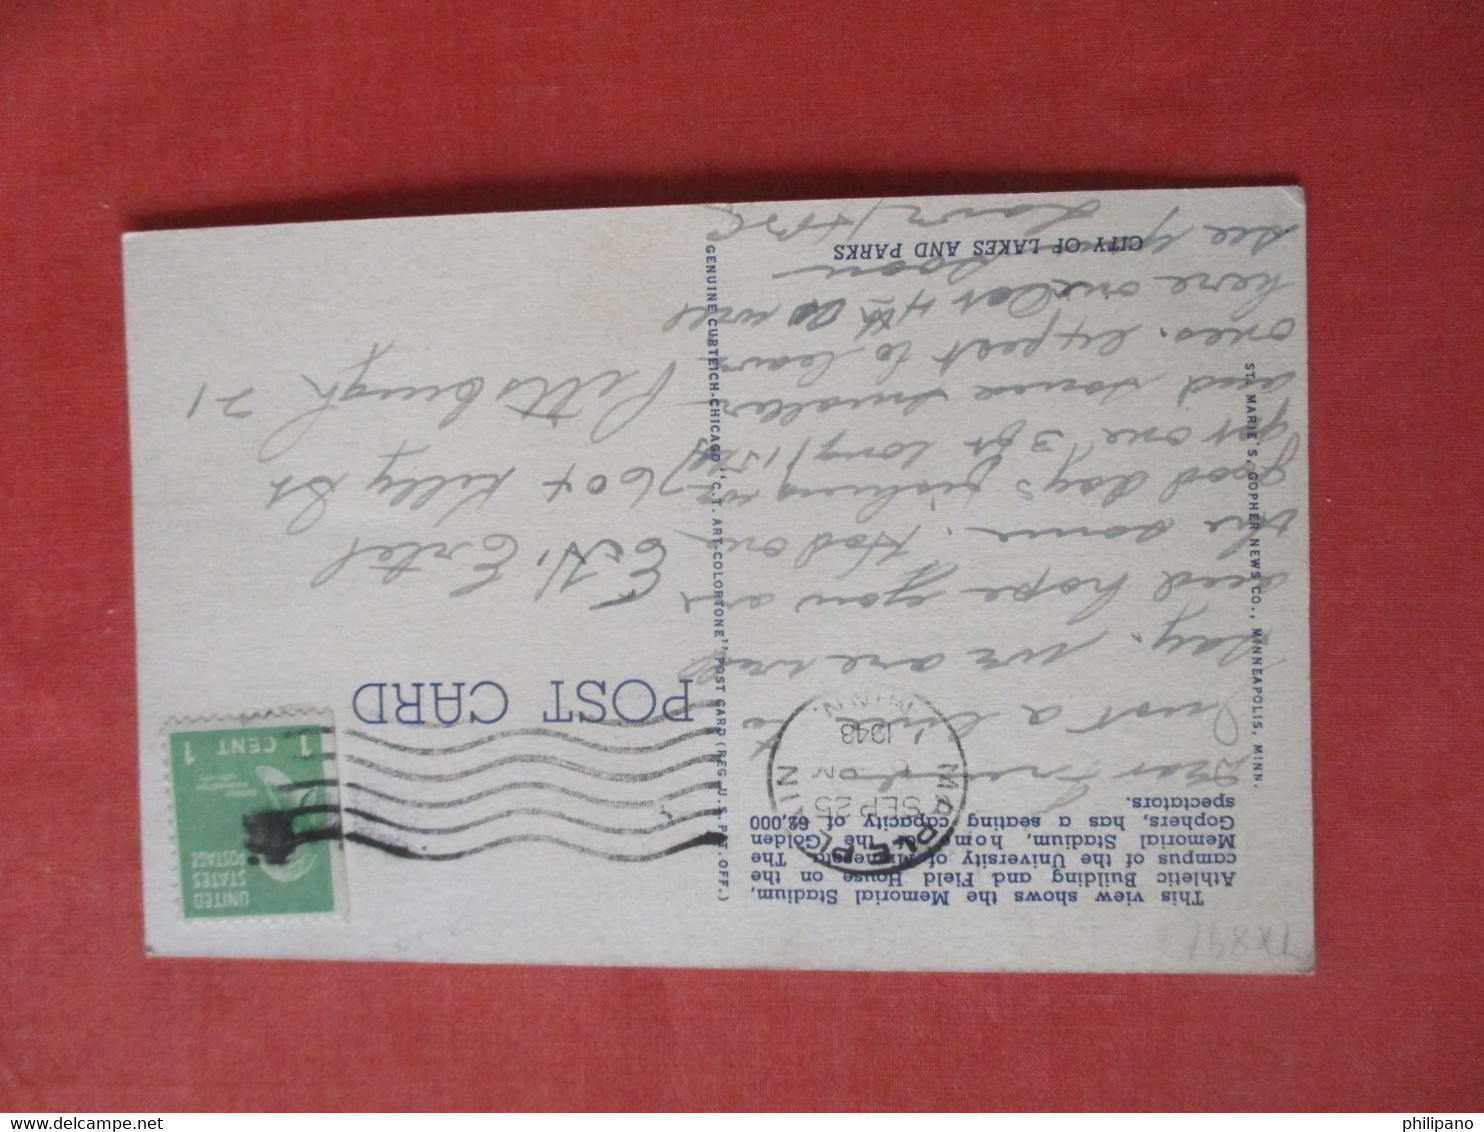 This view shows the Memorial Stadium,
Athletic Building and Field House on the
campus of the University of Minnesota. The
Memorial Stadium, home of the Golden
Gophers, has a seating capacity of 62,000
spectators.
Dear Friends
Just a line to
say. we are well
and hope you are
the same. Had one
good day's fishing
got one 3 ft long
and some smaller
ones. expect to leave
here on 4th
see you soon
CITY OF LAKES AND PARKS
ST. MARIE'S, GOPHER NEWS CO., MINNEAPOLIS, MINN.
GENUINE CURTEICH-CHICAGO "C.T. ART-COLORTONE" POST CARD (REG. U.S. PAT. OFF.)
MAPLE PLAIN
SEP 25
PM
1948
MINN.
POST CARD
UNITED
STATES
POSTAGE
1 CENT 1
E. N. Ertel
7604 Kelly St
Pittsburgh
21
TX891
philipano
delcampe.net